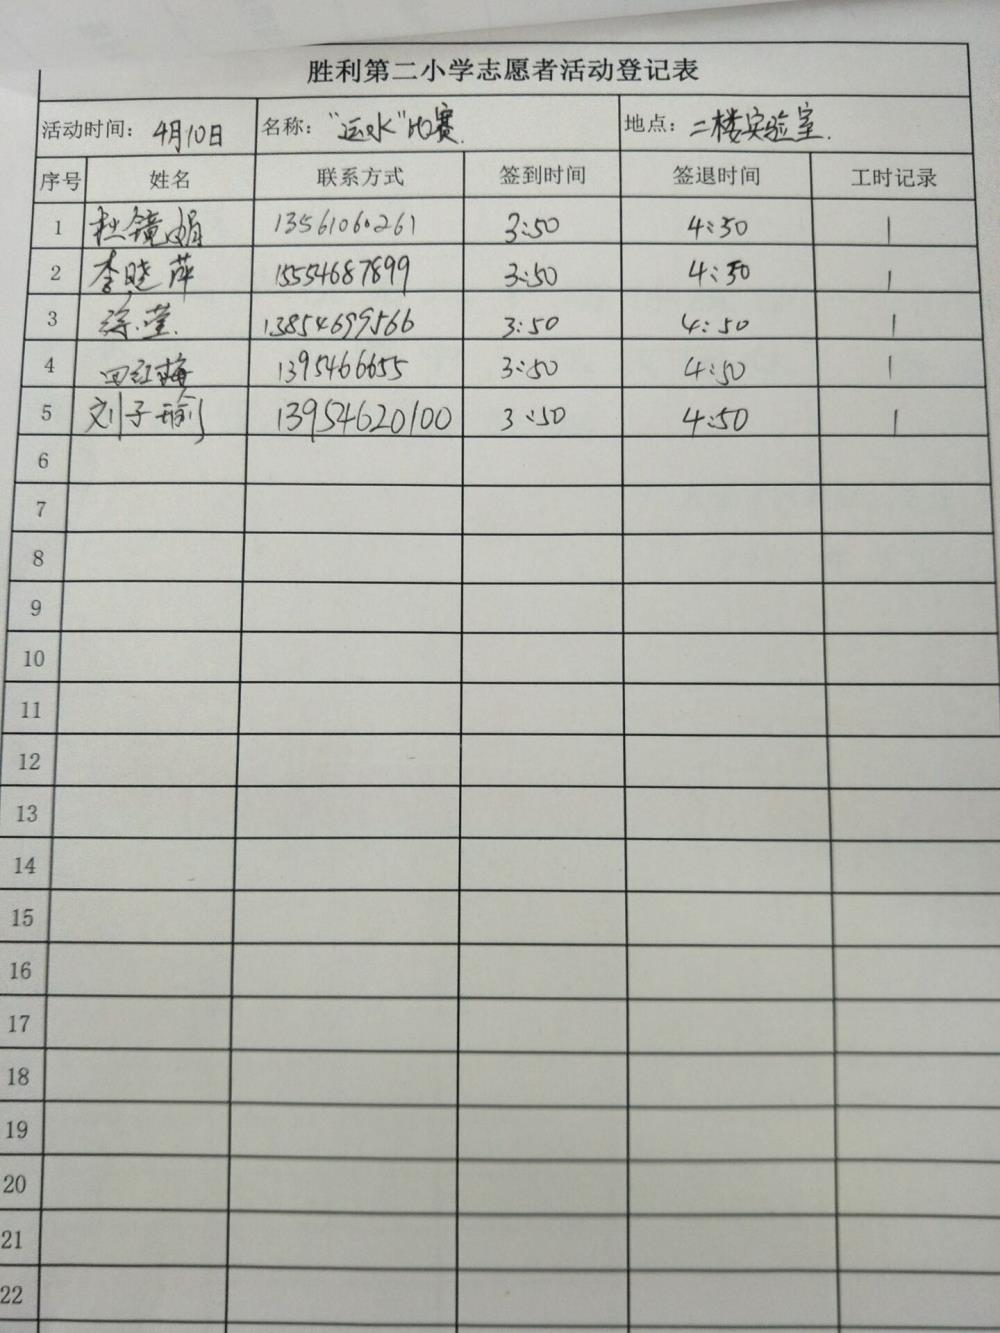 胜利第二小学志愿者活动登记表
活动时间：4月10日 名称："运水"比赛. 地点：二楼实验室.
序号 姓名 联系方式 签到时间 签退时间 工时记录
1 杜镜娟 13561060261 3:50 4:50 1
2 李晓萍 15554687899 3:50 4:50 1
3 徐莹. 13854699566 3:50 4:50 1
4 田红梅 1395466655 3:50 4:50 1
5 刘子瑜 13954620100 3:50 4:50 1
6
7
8
9
10
11
12
13
14
15
16
17
18
19
20
21
22